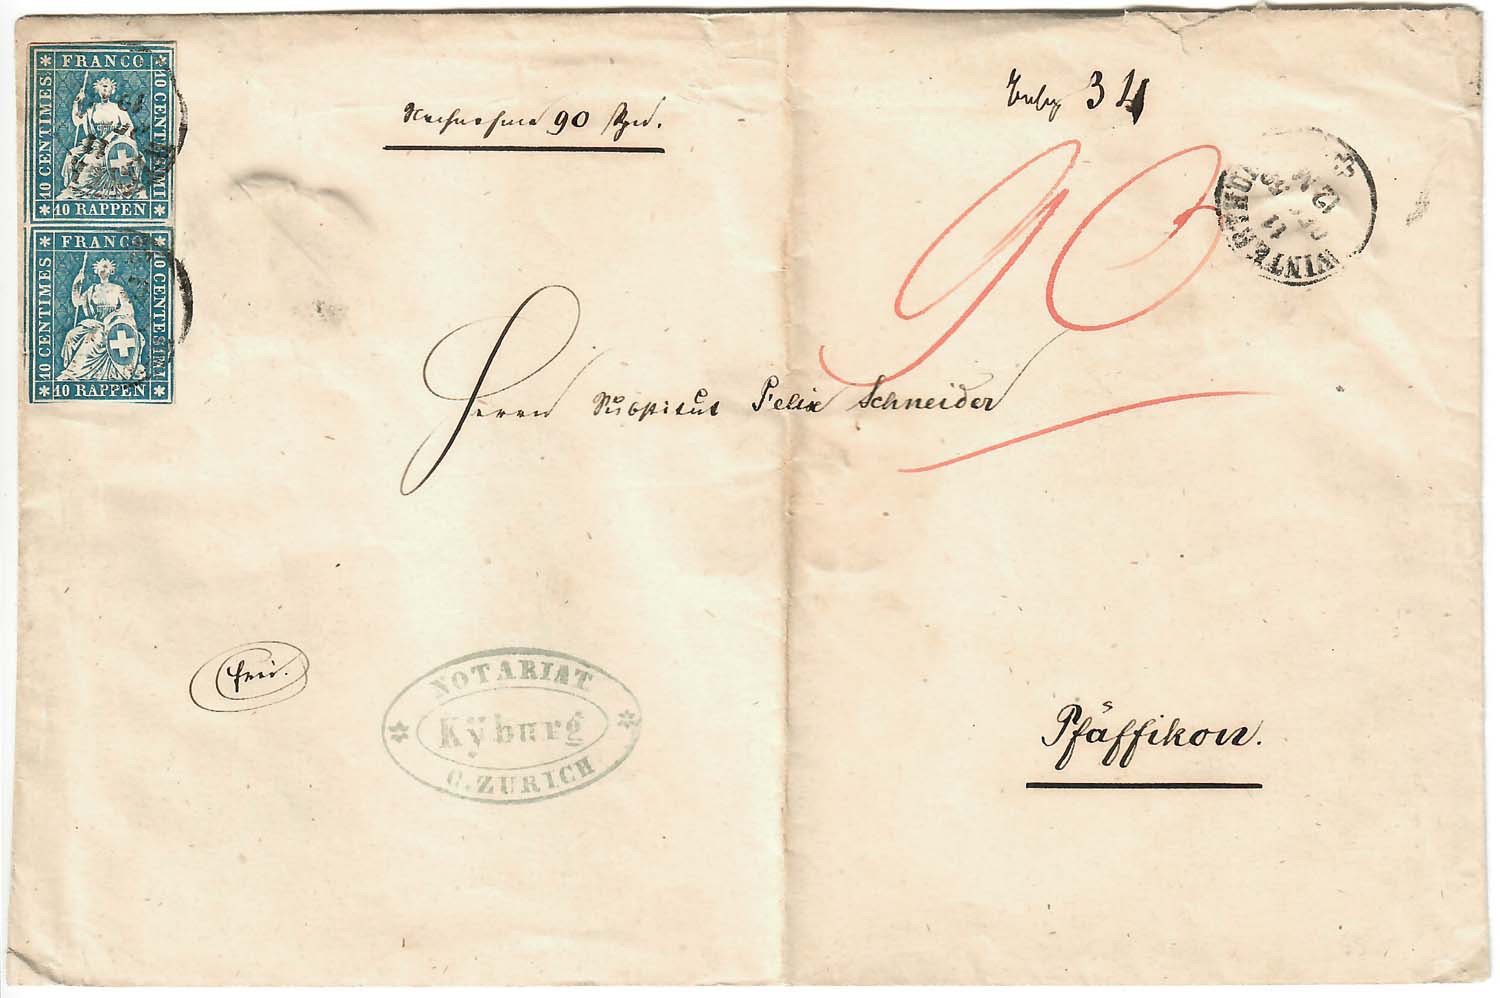 FRANCO
10 CENTIMES
10 CENTESIMI
10 RAPPEN
FRANCO
10 CENTIMES
10 CENTESIMI
10 RAPPEN
Nachnahme 90 Rpn.
34
90
WINTERTHUR
11
12 M
Herrn Substitut Felix Schneider
frei.
NOTARIAT
Kÿburg
C. ZURICH
Pfäffikon.